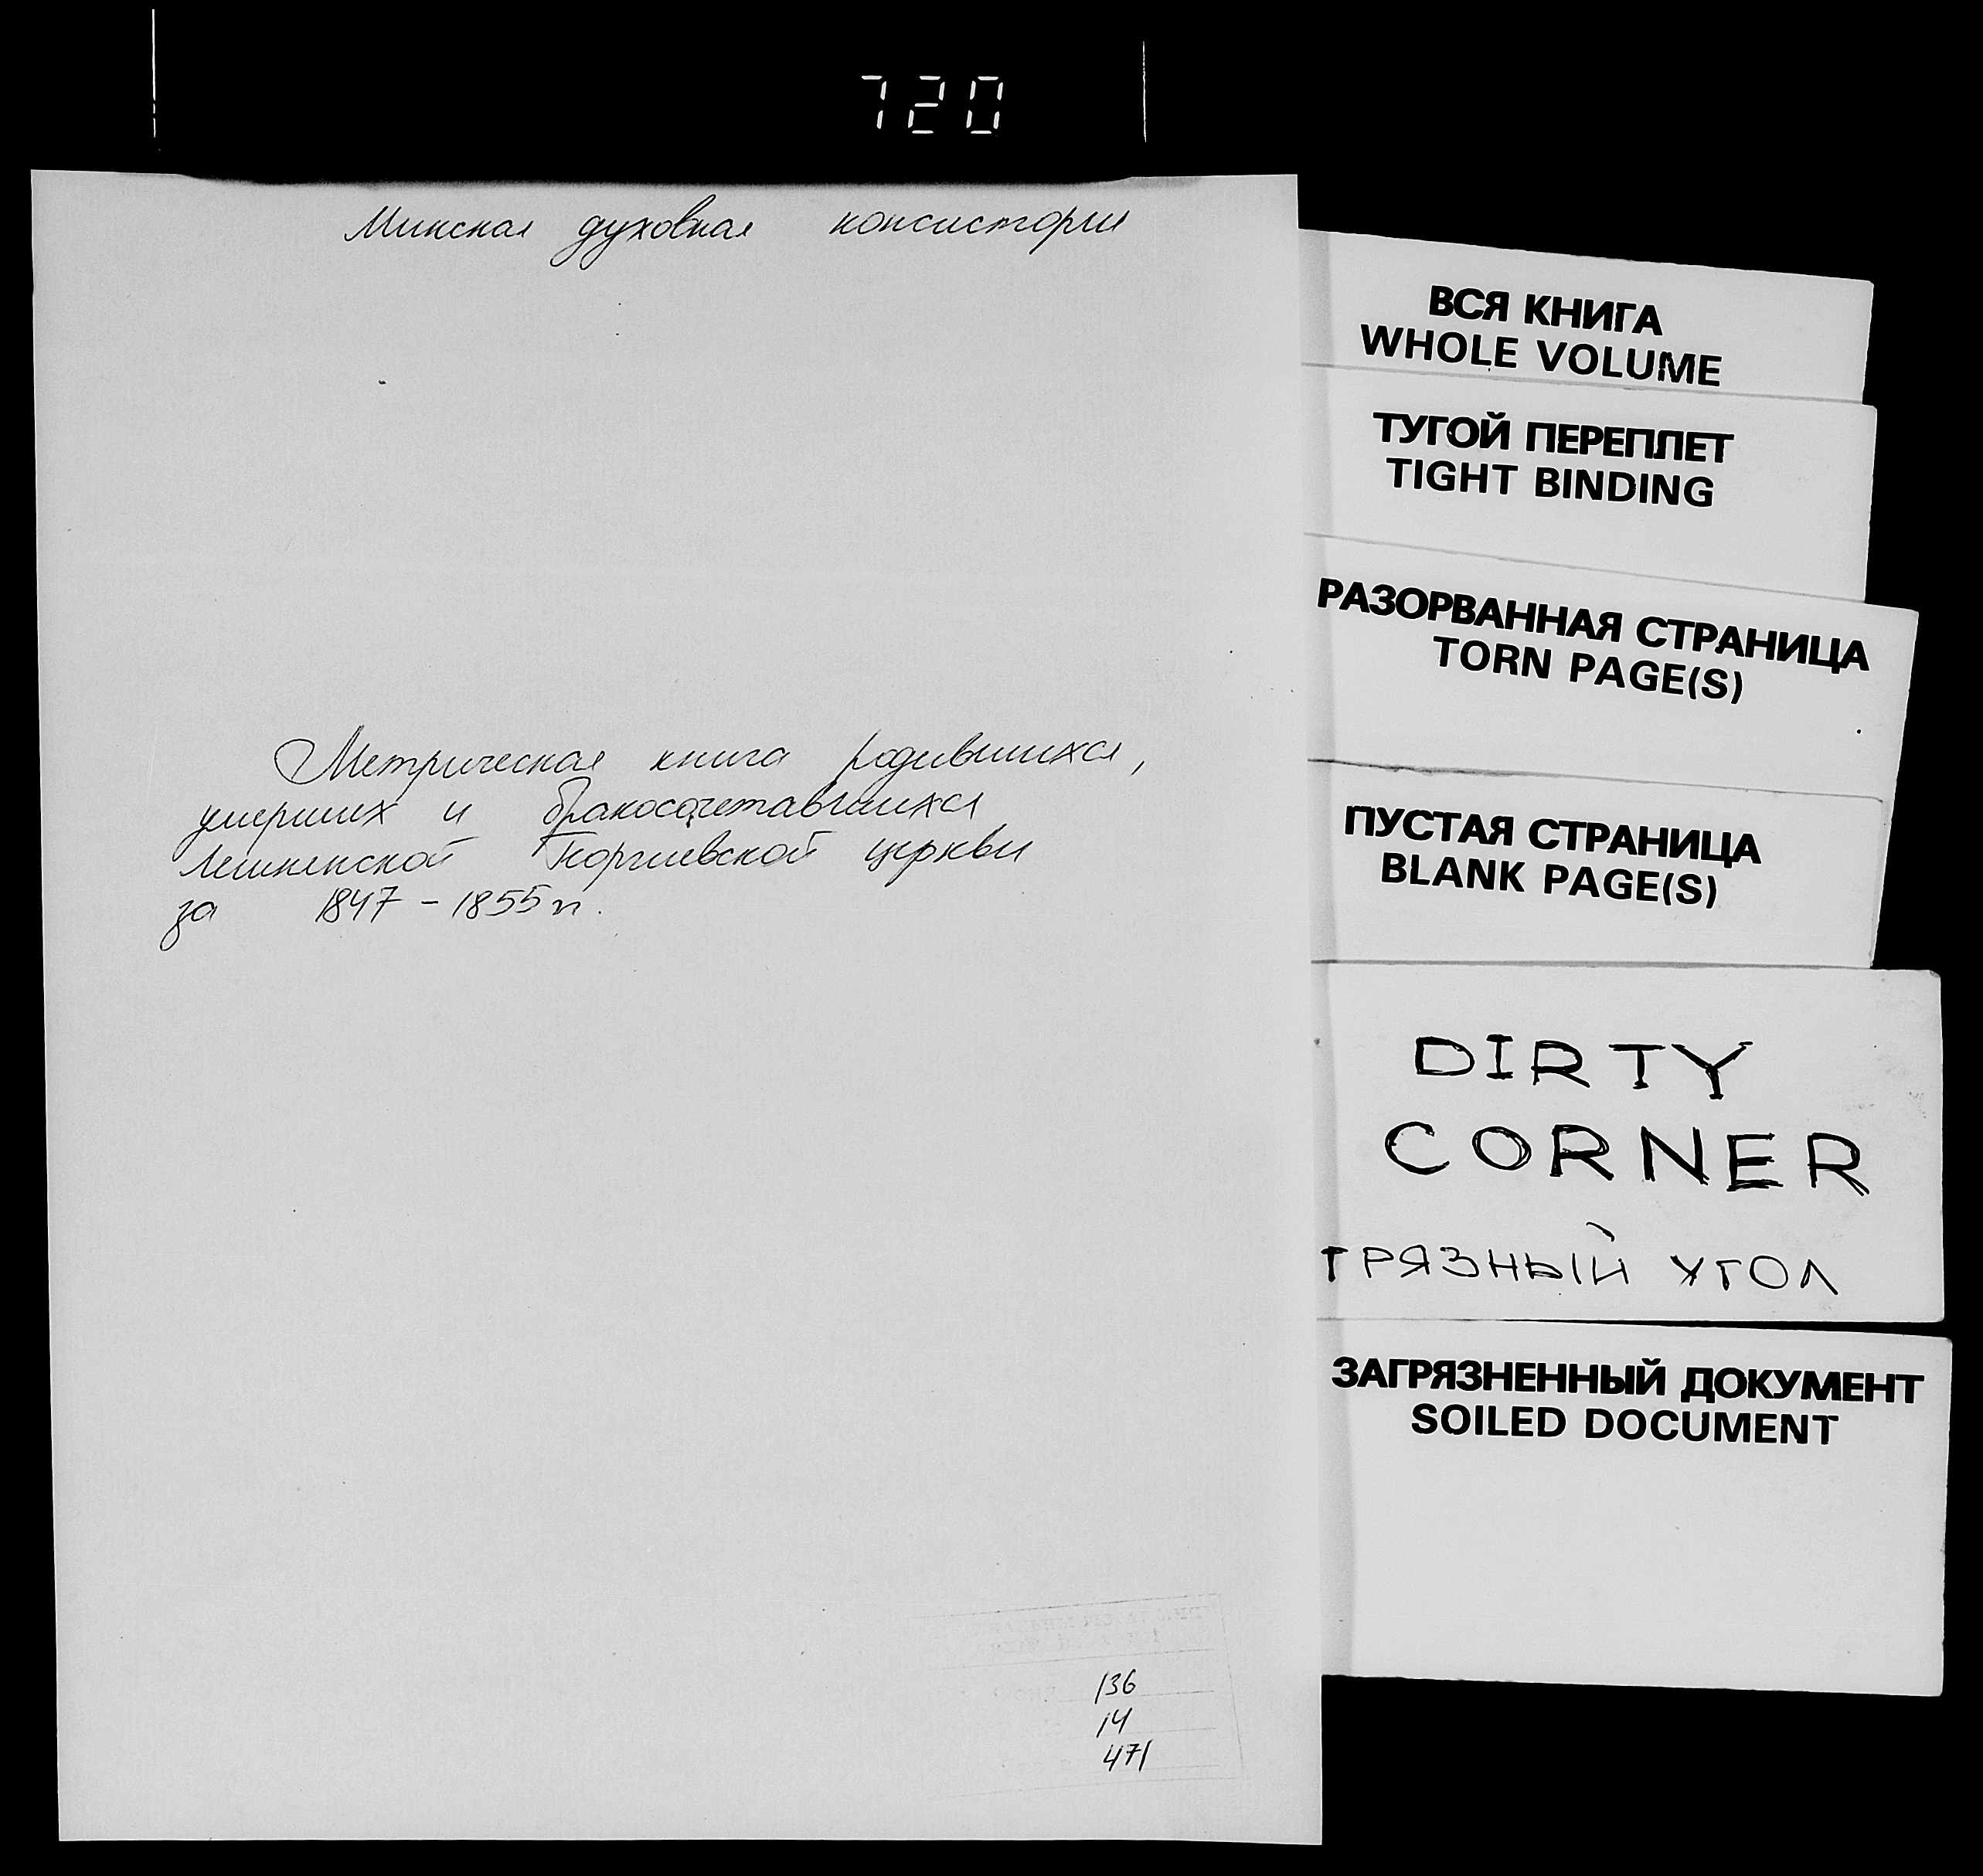 720
Минская духовная консистория
Метрическая книга родившихся,
умерших и бракосочетавшихся
Георгиевской церкви
за 1847 – 1855 гг.
136
14
471
ВСЯ КНИГА
WHOLE VOLUME
ТУГОЙ ПЕРЕПЛЕТ
TIGHT BINDING
РАЗОРВАННАЯ СТРАНИЦА
TORN PAGE(S)
ПУСТАЯ СТРАНИЦА
BLANK PAGE(S)
DIRTY
CORNER
ГРЯЗНЫЙ УГОЛ
ЗАГРЯЗНЕННЫЙ ДОКУМЕНТ
SOILED DOCUMENT